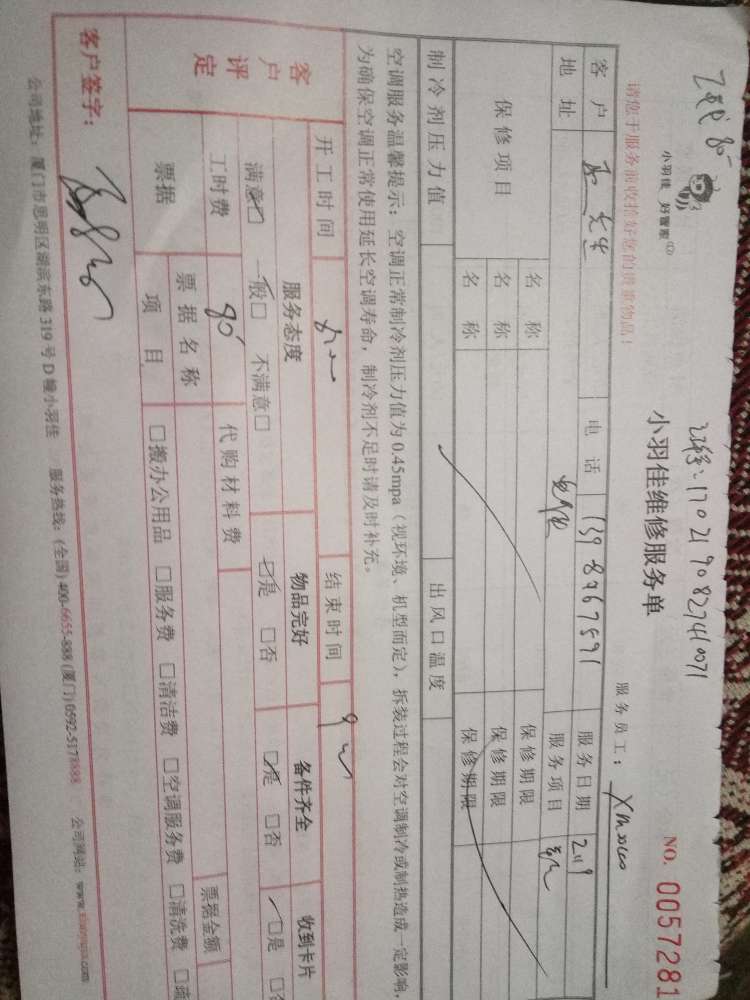 小羽佳 好管家
小羽佳维修服务单
NO. 0057281
请您于服务前收拾好您的贵重物品!
服务员工:
客户 先生 电话 服务日期
地址 服务项目
保修项目 名称 保修期限
名称 保修期限
名称 保修期限
制冷剂压力值 出风口温度
空调服务温馨提示:空调正常制冷剂压力值为0.45mpa(视环境、机型而定),拆装过程会对空调制冷或制热造成一定影响,
为确保空调正常使用延长空调寿命,制冷剂不足时请及时补充。
开工时间 结束时间
客户评定 服务态度 物品完好 备件齐全 收到卡片
满意☑ 一般□ 不满意□ ☑是 □否 ☑是 □否 ☑是
工时费 80 代购材料费
票据 票据名称 票据金额
项目 □搬办公用品 □服务费 □清洁费 □空调服务费 □清洗费
客户签字:
公司地址:厦门市思明区湖滨东路319号D幢小羽佳 服务热线:(全国)400-6655-888(厦门)0592-5178888 公司网站:www.xiaoyujia.com